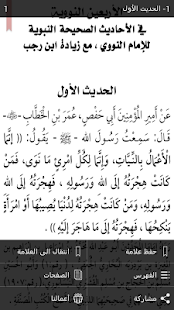 1- الحديث الأول
1
الأربعين النووية
في الأحاديث الصحيحة النبوية
للإمام النووي ، مع زيادة ابن رجب
الحديث الأول
عَنْ أَمِيرِ الْمُؤْمِنِينَ أَبِي حَفْصٍ عُمَرَ بْنِ الْخَطَّابِ -
- قَالَ: سَمِعْتُ رَسُولَ اللهِ - يَقُولُ: (( إِنَّمَا
الْأَعْمَالُ بِالنِّيَّاتِ، وَإِنَّمَا لِكُلِّ امْرِئٍ مَا نَوَى، فَمَنْ
كَانَتْ هِجْرَتُهُ إِلَى اللهِ وَرَسُولِهِ، فَهِجْرَتُهُ إِلَى اللهِ
وَرَسُولِهِ، وَمَنْ كَانَتْ هِجْرَتُهُ لِدُنْيَا يُصِيبُهَا أَوِ امْرَأَةٍ
يَنْكِحُهَا، فَهِجْرَتُهُ إِلَى مَا هَاجَرَ إِلَيْهِ )).
حفظ علامة
انتقال الى العلامة
الفهرس
الصفحات
مشاركة
أعمالنا